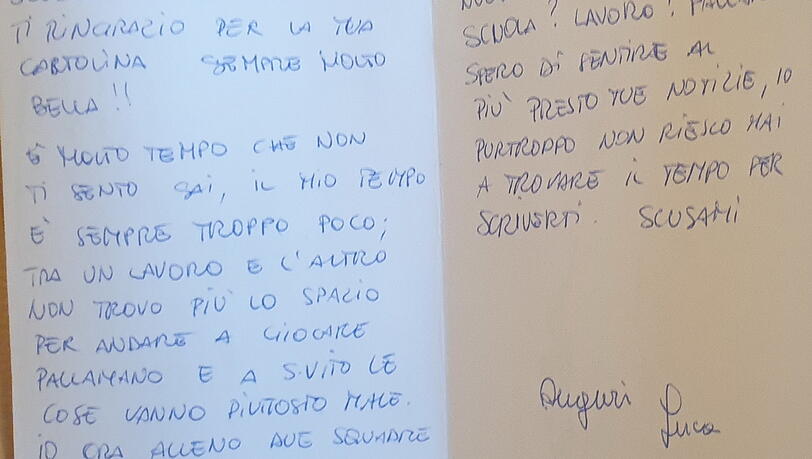 TI RINGRAZIO PER LA TUA
CARTOLINA SEMPRE MOLTO
BELLA!!
È MOLTO TEMPO CHE NON
TI SENTO SAI, IL MIO TEMPO
E' SEMPRE TROPPO POCO;
TRA UN LAVORO E L'ALTRO
NON TROVO PIU' LO SPAZIO
PER ANDARE A GIOCARE
PALLAMANO E A S.VITO LE
COSE VANNO PIUTTOSTO MALE.
IO ORA ALLENO DUE SQUADRE
SCUOLA? LAVORO?
SPERO DI SENTIRE AL
PIU' PRESTO TUE NOTIZIE, IO
PURTROPPO NON RIESCO MAI
A TROVARE IL TEMPO PER
SCRIVERTI. SCUSAMI
Auguri Luca